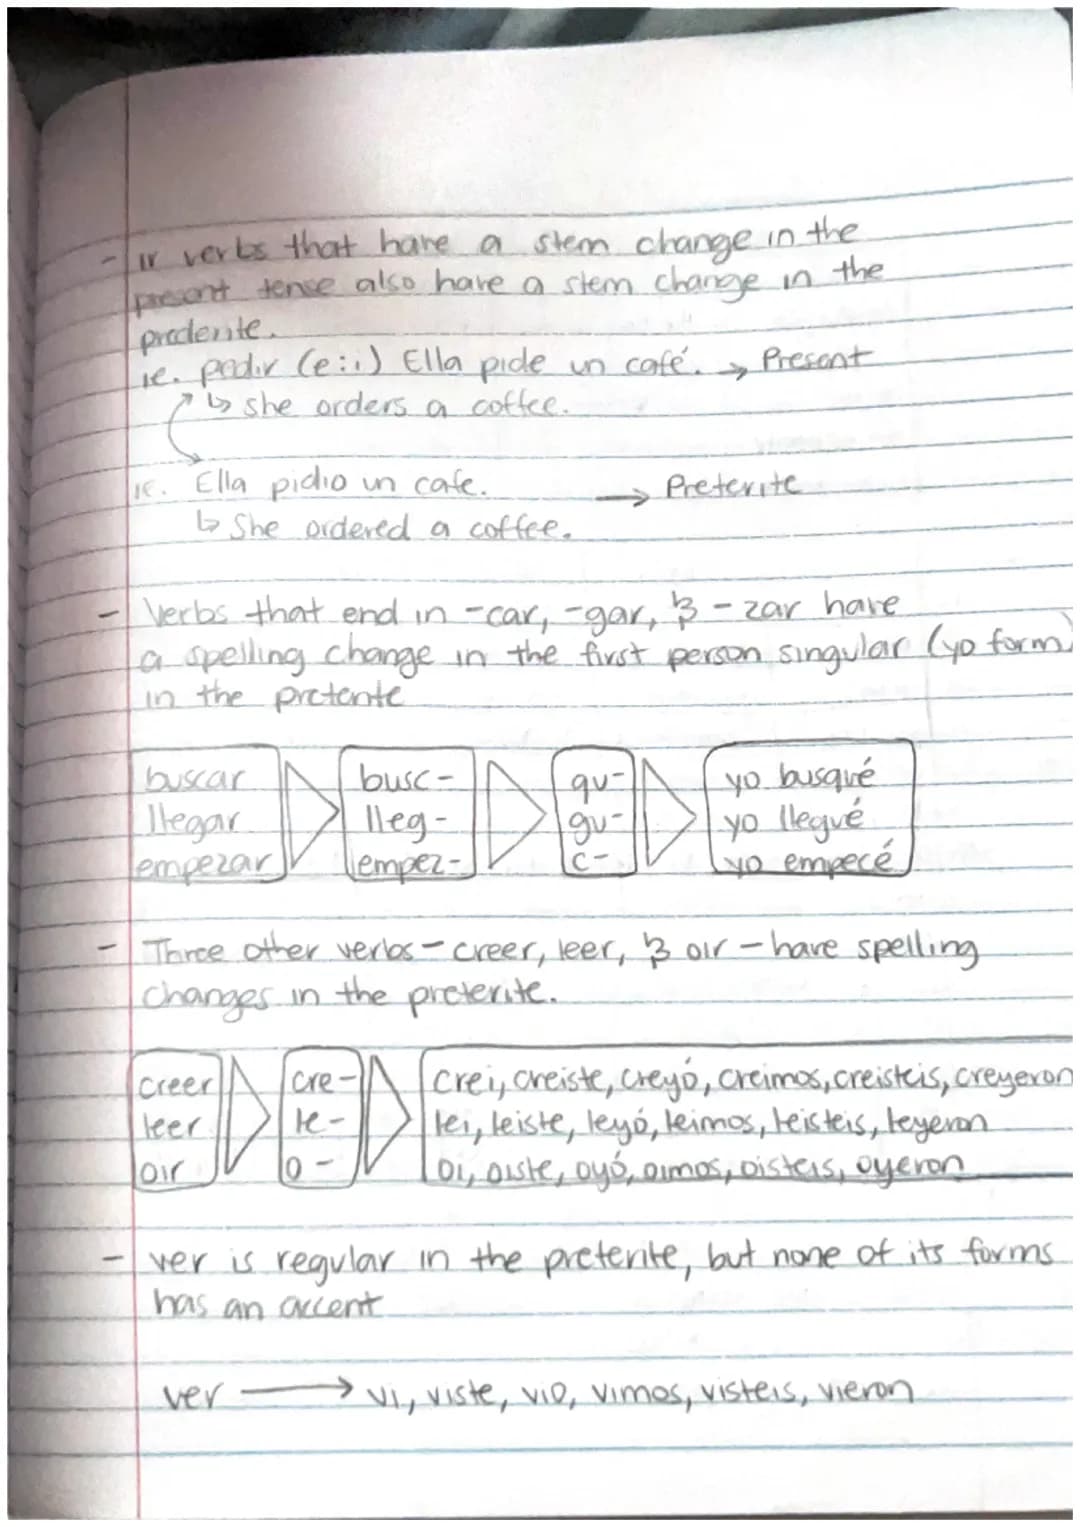 - ir verbs that have a stem change in the
present tence also have a stem change in the
prederite.
ie. pedir (e:i) Ella pide un café. → Present
↳ she orders a coffee.
ie. Ella pidio un cafe. → Preterite
↳ She ordered a coffee.
- Verbs that end in -car, -gar, & -zar have
a spelling change in the first person singular (yo form)
in the preterite
buscar busc- qu- yo busqué
llegar lleg- gu- yo llegué
empezar empez- c- yo empecé
- Three other verbs - creer, leer, & oir - have spelling
changes in the preterite.
creer cre- crei, creiste, creyó, creimos, creisteis, creyeron
leer le- lei, leiste, leyó, leimos, leisteis, leyeron
oir o- oi, oiste, oyó, oimos, oisteis, oyeron
- ver is regular in the preterite, but none of its forms
has an accent
ver → vi, viste, vio, vimos, visteis, vieron